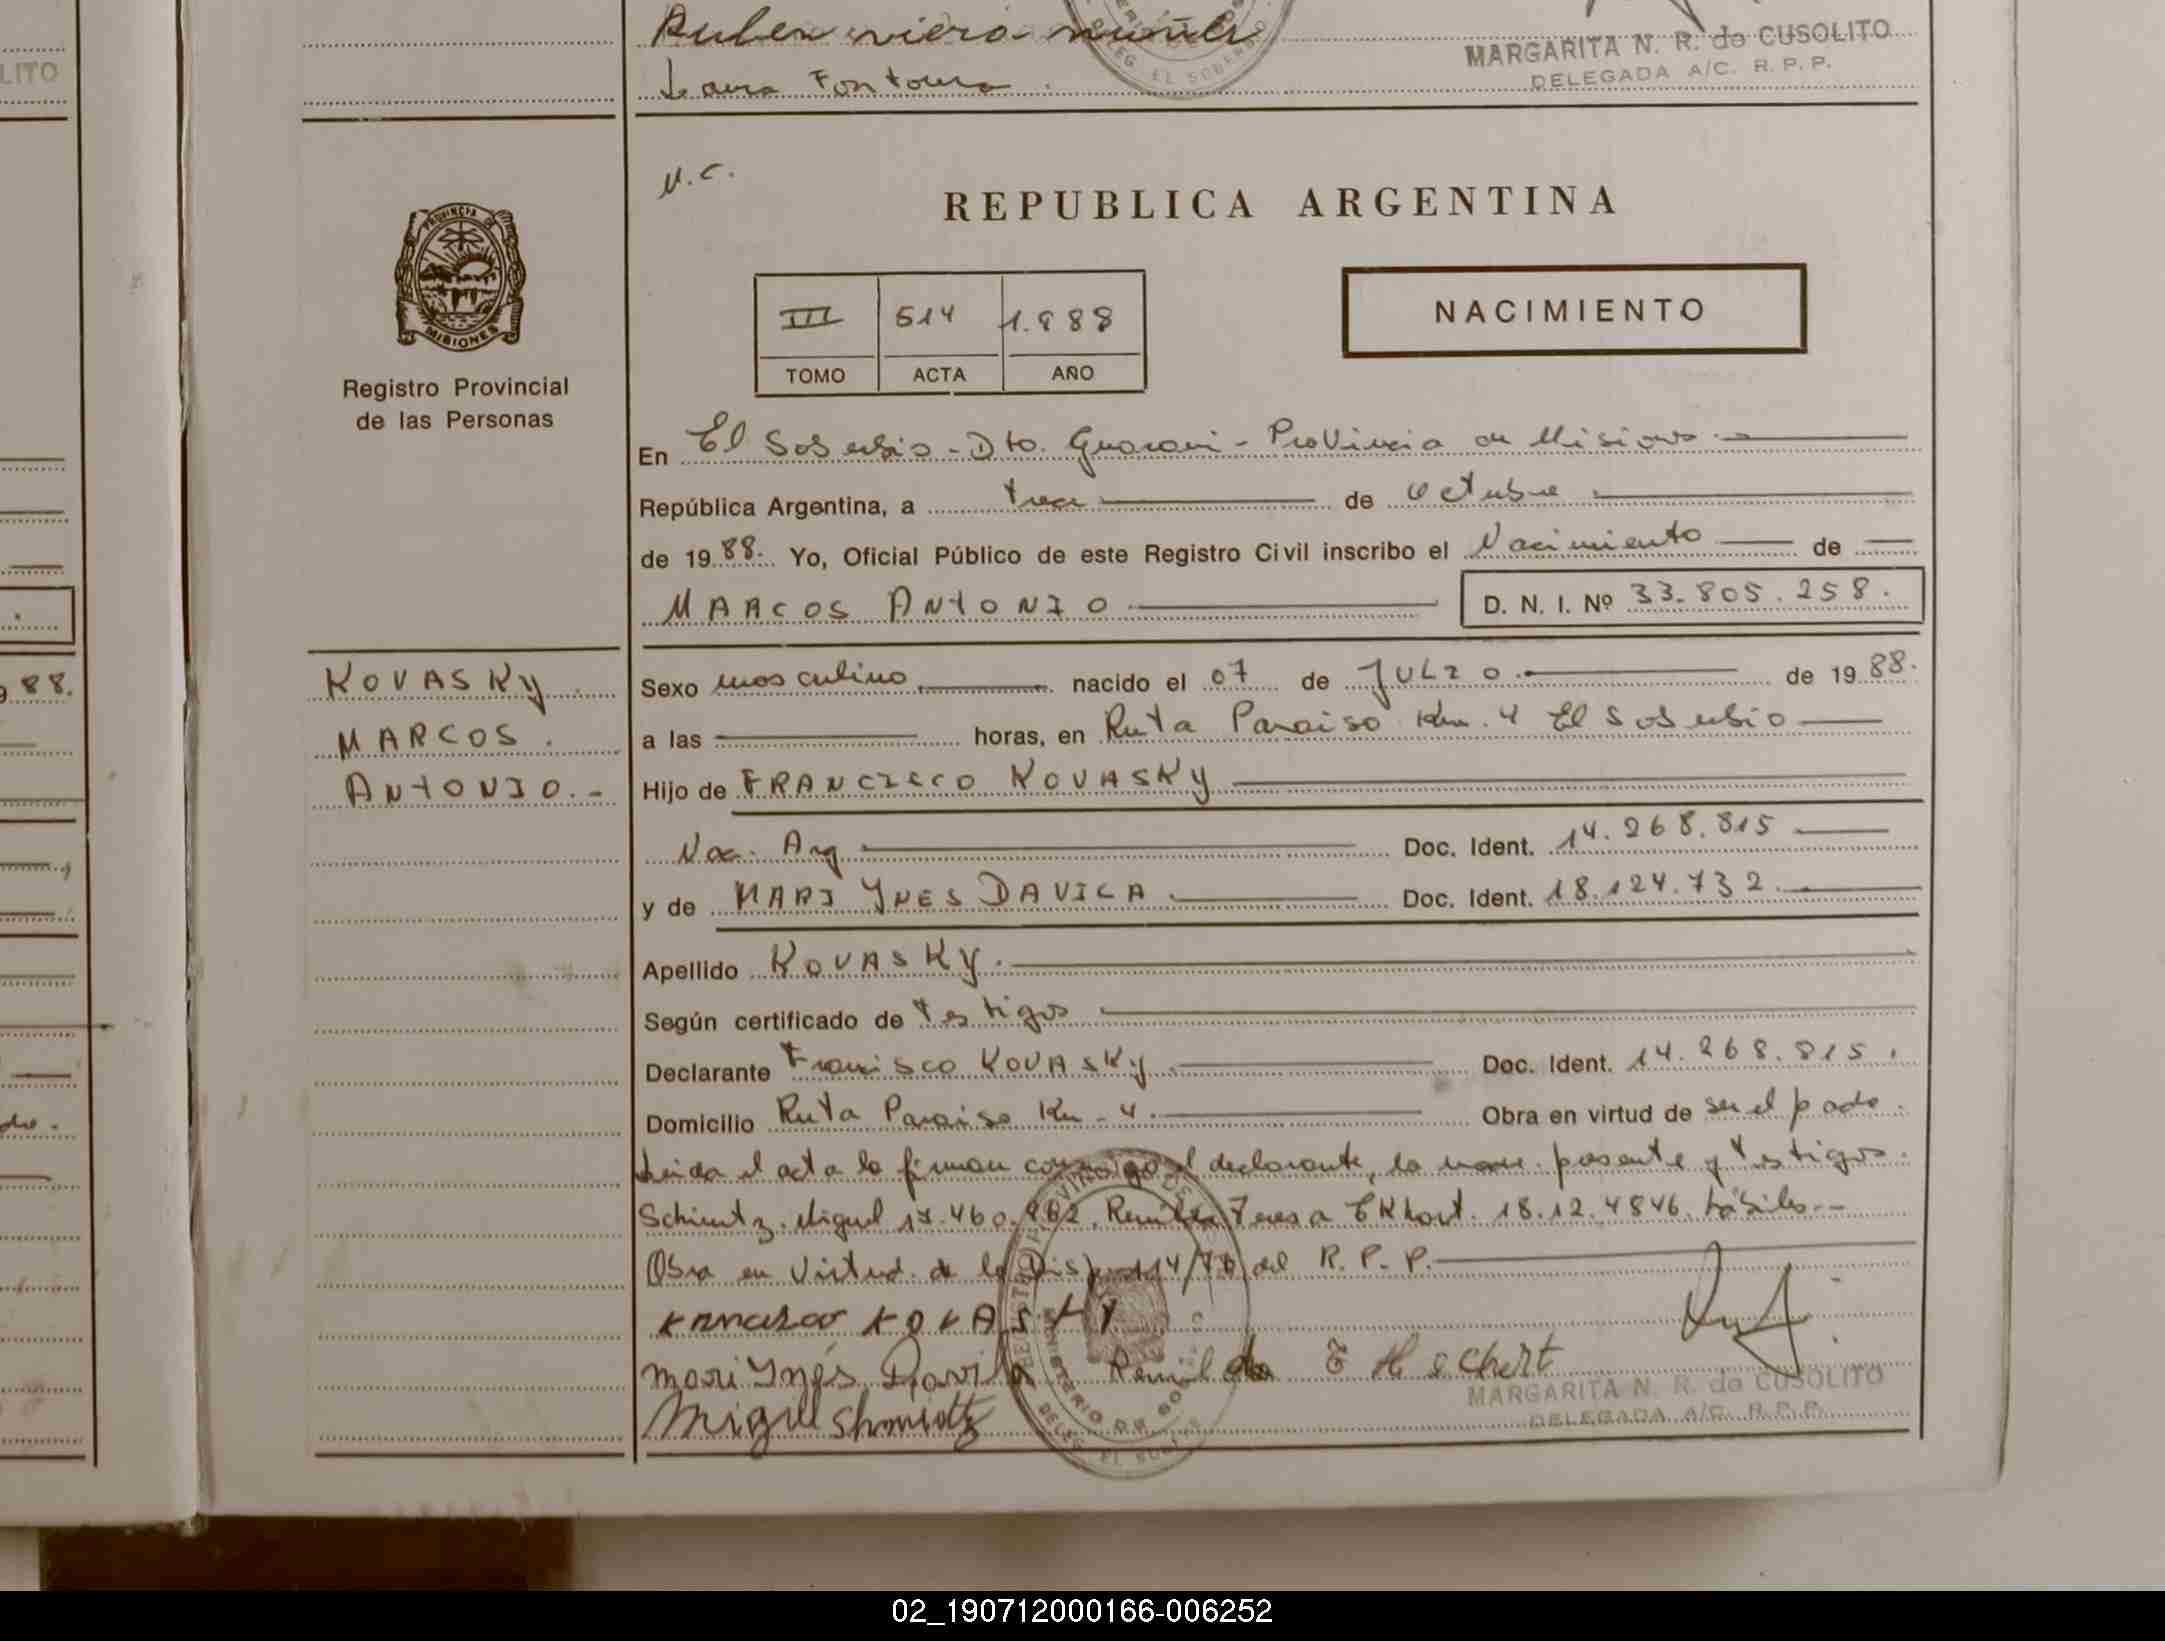 Ruben viera nuñez
Laura Fontoura
MARGARITA N. R. de CUSOLITO
DELEGADA A/C. R. P. P.
LITO
N.C.
REPUBLICA ARGENTINA
PROVINCIA DE
MISIONES
Registro Provincial
de las Personas
III 514 1.988
TOMO ACTA AÑO
NACIMIENTO
En El Soberbio - Dto. Guarani - Provincia de Misiones.-
República Argentina, a trece de octubre
de 19 88. Yo, Oficial Público de este Registro Civil inscribo el Nacimiento de
MARCOS ANTONIO
D. N. I. Nº 33.805.258.
KOVASKY
MARCOS.
ANTONIO.-
88.
Sexo masculino nacido el 07 de JULIO de 19 88.
a las horas, en Ruta Paraiso Km. 4 El Soberbio
Hijo de FRANCISCO KOVASKY
Nac. Arg Doc. Ident. 14.268.815
y de MARI YNES DAVILA Doc. Ident. 18.124.732.
Apellido KOVASKY.
Según certificado de testigos
Declarante Francisco KOVASKY Doc. Ident. 14.268.815.
Domicilio Ruta Paraiso Km - 4. Obra en virtud de ser el padre.
Leida el acta la firman conmigo el declarante, la madre presente y testigos.
Schmitz. Miguel 17.460. Remilda Teresa 18.12.4846. hábiles.-
Obra en virtud de la Disp. 14/76 del R. P. P.
KOVASKY
Mari Ynés Davila Remilda
Miguel Shmidtz
MARGARITA N. R. de CUSOLITO
DELEGADA A/C. R. P. P.
02_190712000166-006252